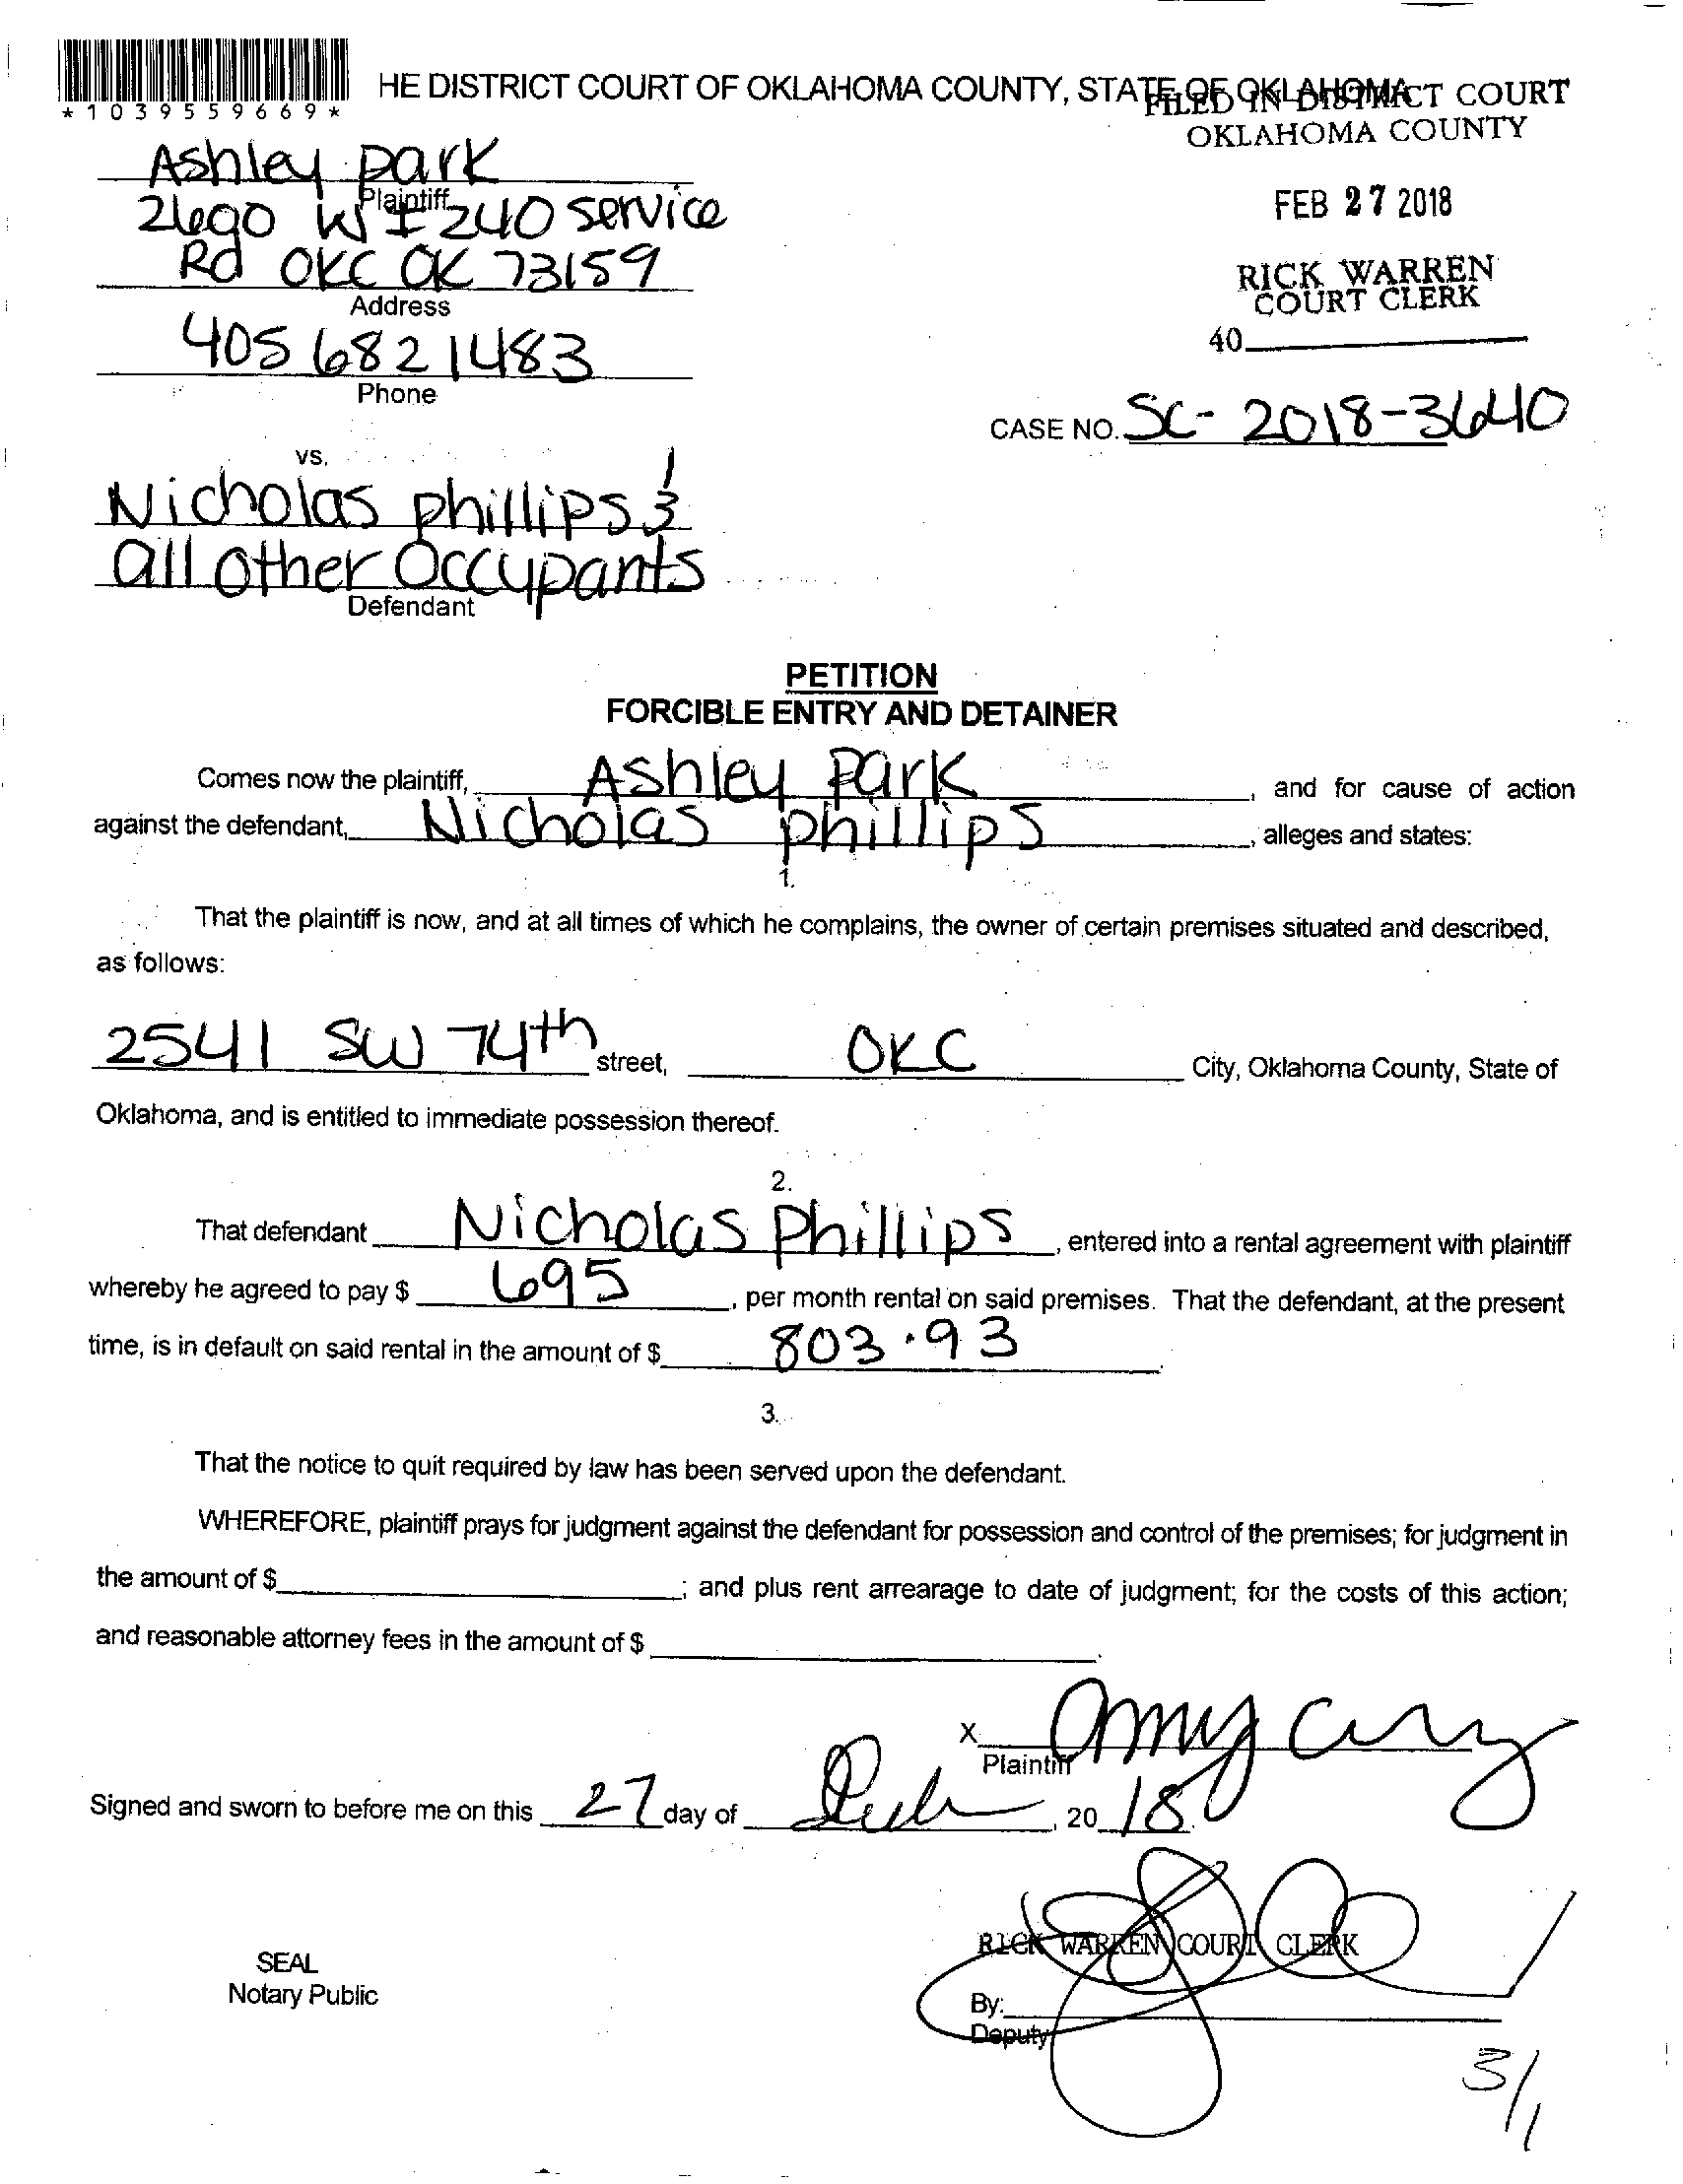 *1039559669*
HE DISTRICT COURT OF OKLAHOMA COUNTY, STATE OF OKLAHOMA
FILED IN DISTRICT COURT
OKLAHOMA COUNTY
FEB 27 2018
RICK WARREN
COURT CLERK
40
Ashley Park
Plaintiff
2690 W I 240 Service
Rd OKC OK 73159
Address
405 682 1483
Phone
CASE NO. SC-2018-3640
vs.
Nicholas Phillips &
all other Occupants
Defendant
PETITION
FORCIBLE ENTRY AND DETAINER
Comes now the plaintiff, Ashley Park, and for cause of action
against the defendant, Nicholas Phillips, alleges and states:
1.
That the plaintiff is now, and at all times of which he complains, the owner of certain premises situated and described,
as follows:
2541 SW 74th street, OKC City, Oklahoma County, State of
Oklahoma, and is entitled to immediate possession thereof.
2.
That defendant Nicholas Phillips, entered into a rental agreement with plaintiff
whereby he agreed to pay $ 695, per month rental on said premises. That the defendant, at the present
time, is in default on said rental in the amount of $ 803.93.
3.
That the notice to quit required by law has been served upon the defendant.
WHEREFORE, plaintiff prays for judgment against the defendant for possession and control of the premises; for judgment in
the amount of $ ; and plus rent arrearage to date of judgment; for the costs of this action;
and reasonable attorney fees in the amount of $ .
X Amy
Plaintiff
Signed and sworn to before me on this 27 day of , 20 18.
RICK WARREN COURT CLERK
SEAL
Notary Public
By:
Deputy
3/1